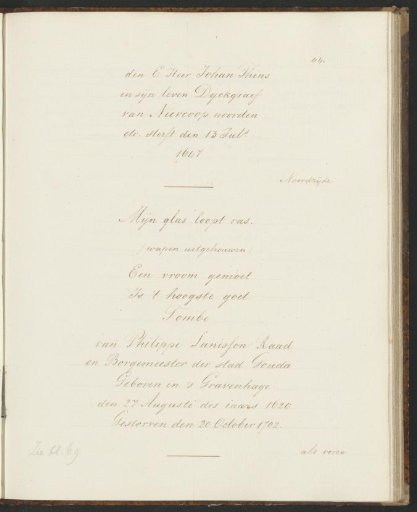 44.
den E Heer Johan Thens
en syn leven Dyckgraef
van Niercoop noorden
etc. sterft den 13 Jul.
1647
Noordzijde
Mijn glas loopt ras.
(wapen uitgehouwen)
Een vroom gemoet
Is 't hoogste goet
Tombe
van Philippe Lanisson Raad
en Borgemeester der stad Gouda
Geboren in 's Gravenhage
den 27 Augusti des jaars 1620
Gestorven den 20 October 1702.
Zie bl. 69
als voren